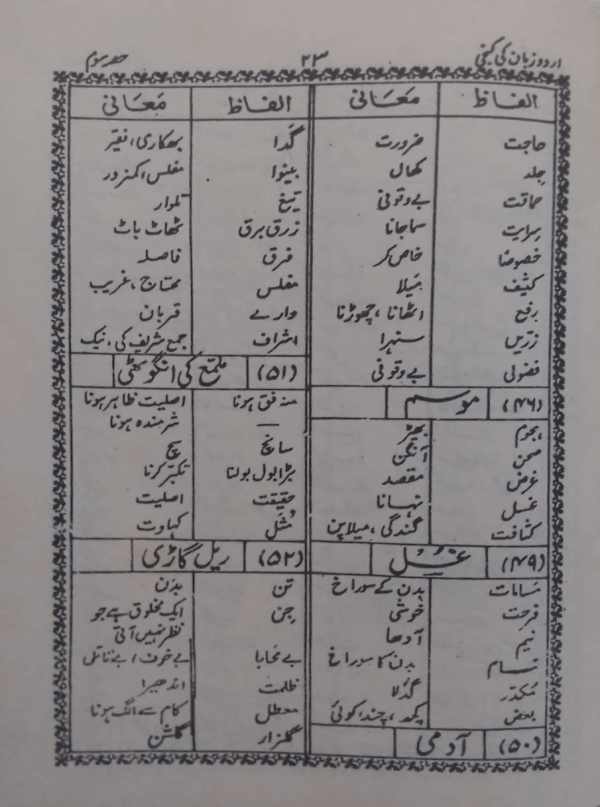 اردو زبان کی کنجی ۲۳ حصہ سوم
الفاظ مَعَانی
حاجت ضرورت
جِلد کھال
حماقت بے وقوفی
سرایت سما جانا
خصوصًا خاص کر
کثیف مَیلا
رفع اٹھانا ، چھوڑنا
زرّیں سنہرا
فضولی بے وقوفی
(۴۶) موسم
ہجوم بھیڑ
صحن آنگن
غرض مقصد
غسل نہانا
کثافت گندگی ، میلا پن
(۴۹) غسل
مَسامات بدن کے سوراخ
فرحت خوشی
نیم آدھا
مَسام بدن کا سوراخ
مکدّر گدلا
بعض کچھ ، چند ، کوئی
(۵۰) آدمی
الفاظ مَعَانی
گدا بھکاری ، فقیر
بینوا مفلس ، کمزور
تیغ تلوار
زرق برق ٹھاٹ باٹ
فرق فاصلہ
مفلس محتاج ، غریب
وارے قربان
اشراف جمع شریف کی ، نیک
(۵۱) ملمّع کی انگوٹھی
منہ فق ہونا اصلیت ظاہر ہونا
— شرمندہ ہونا
سانچ سچ
بڑا بول بولنا تکبّر کرنا
حقیقت اصلیت
مَثَل کہاوت
(۵۲) ریل گاڑی
تن بدن
جِن ایک مخلوق ہے جو
نظر نہیں آتی
بے محابا بے خوف ، بے تامل
ظلمت اندھیرا
معطل کام سے الگ ہونا
گلزار گلشن